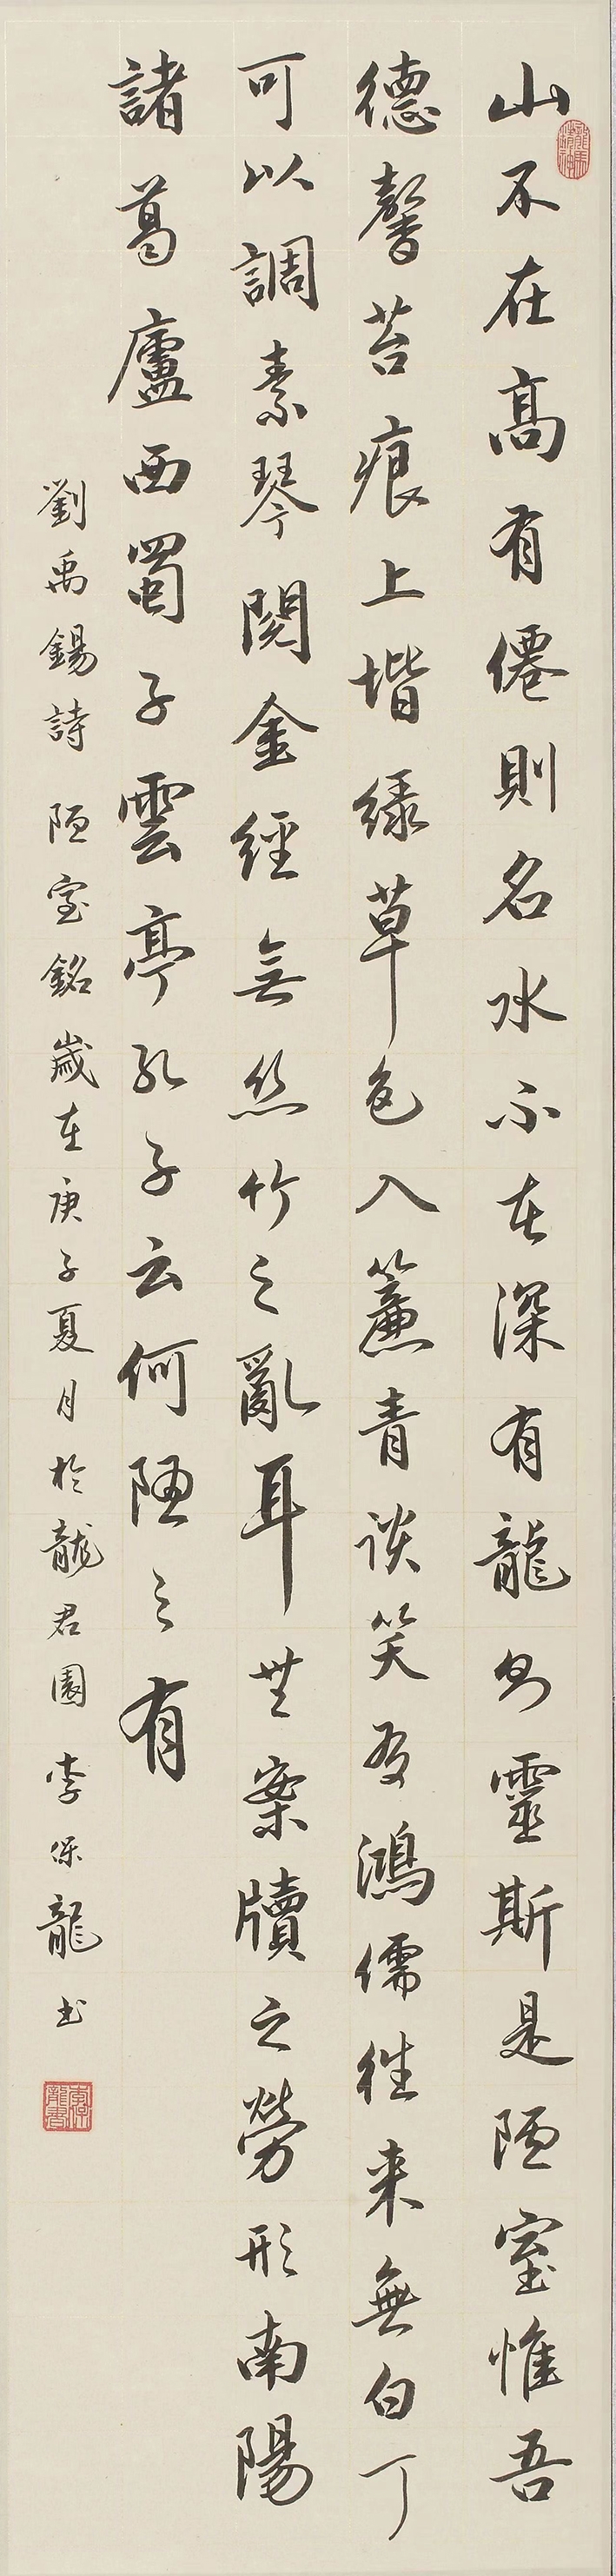 山不在高有僊則名水不在深有龍則靈斯是陋室惟吾
德馨苔痕上堦緑草色入簾青談笑有鴻儒往来無白丁
可以調素琴閱金經無丝竹之亂耳無案牘之勞形南陽
諸葛廬西蜀子雲亭孔子云何陋之有
劉禹錫詩陋室銘歲在庚子夏月於龍君園李保龍书